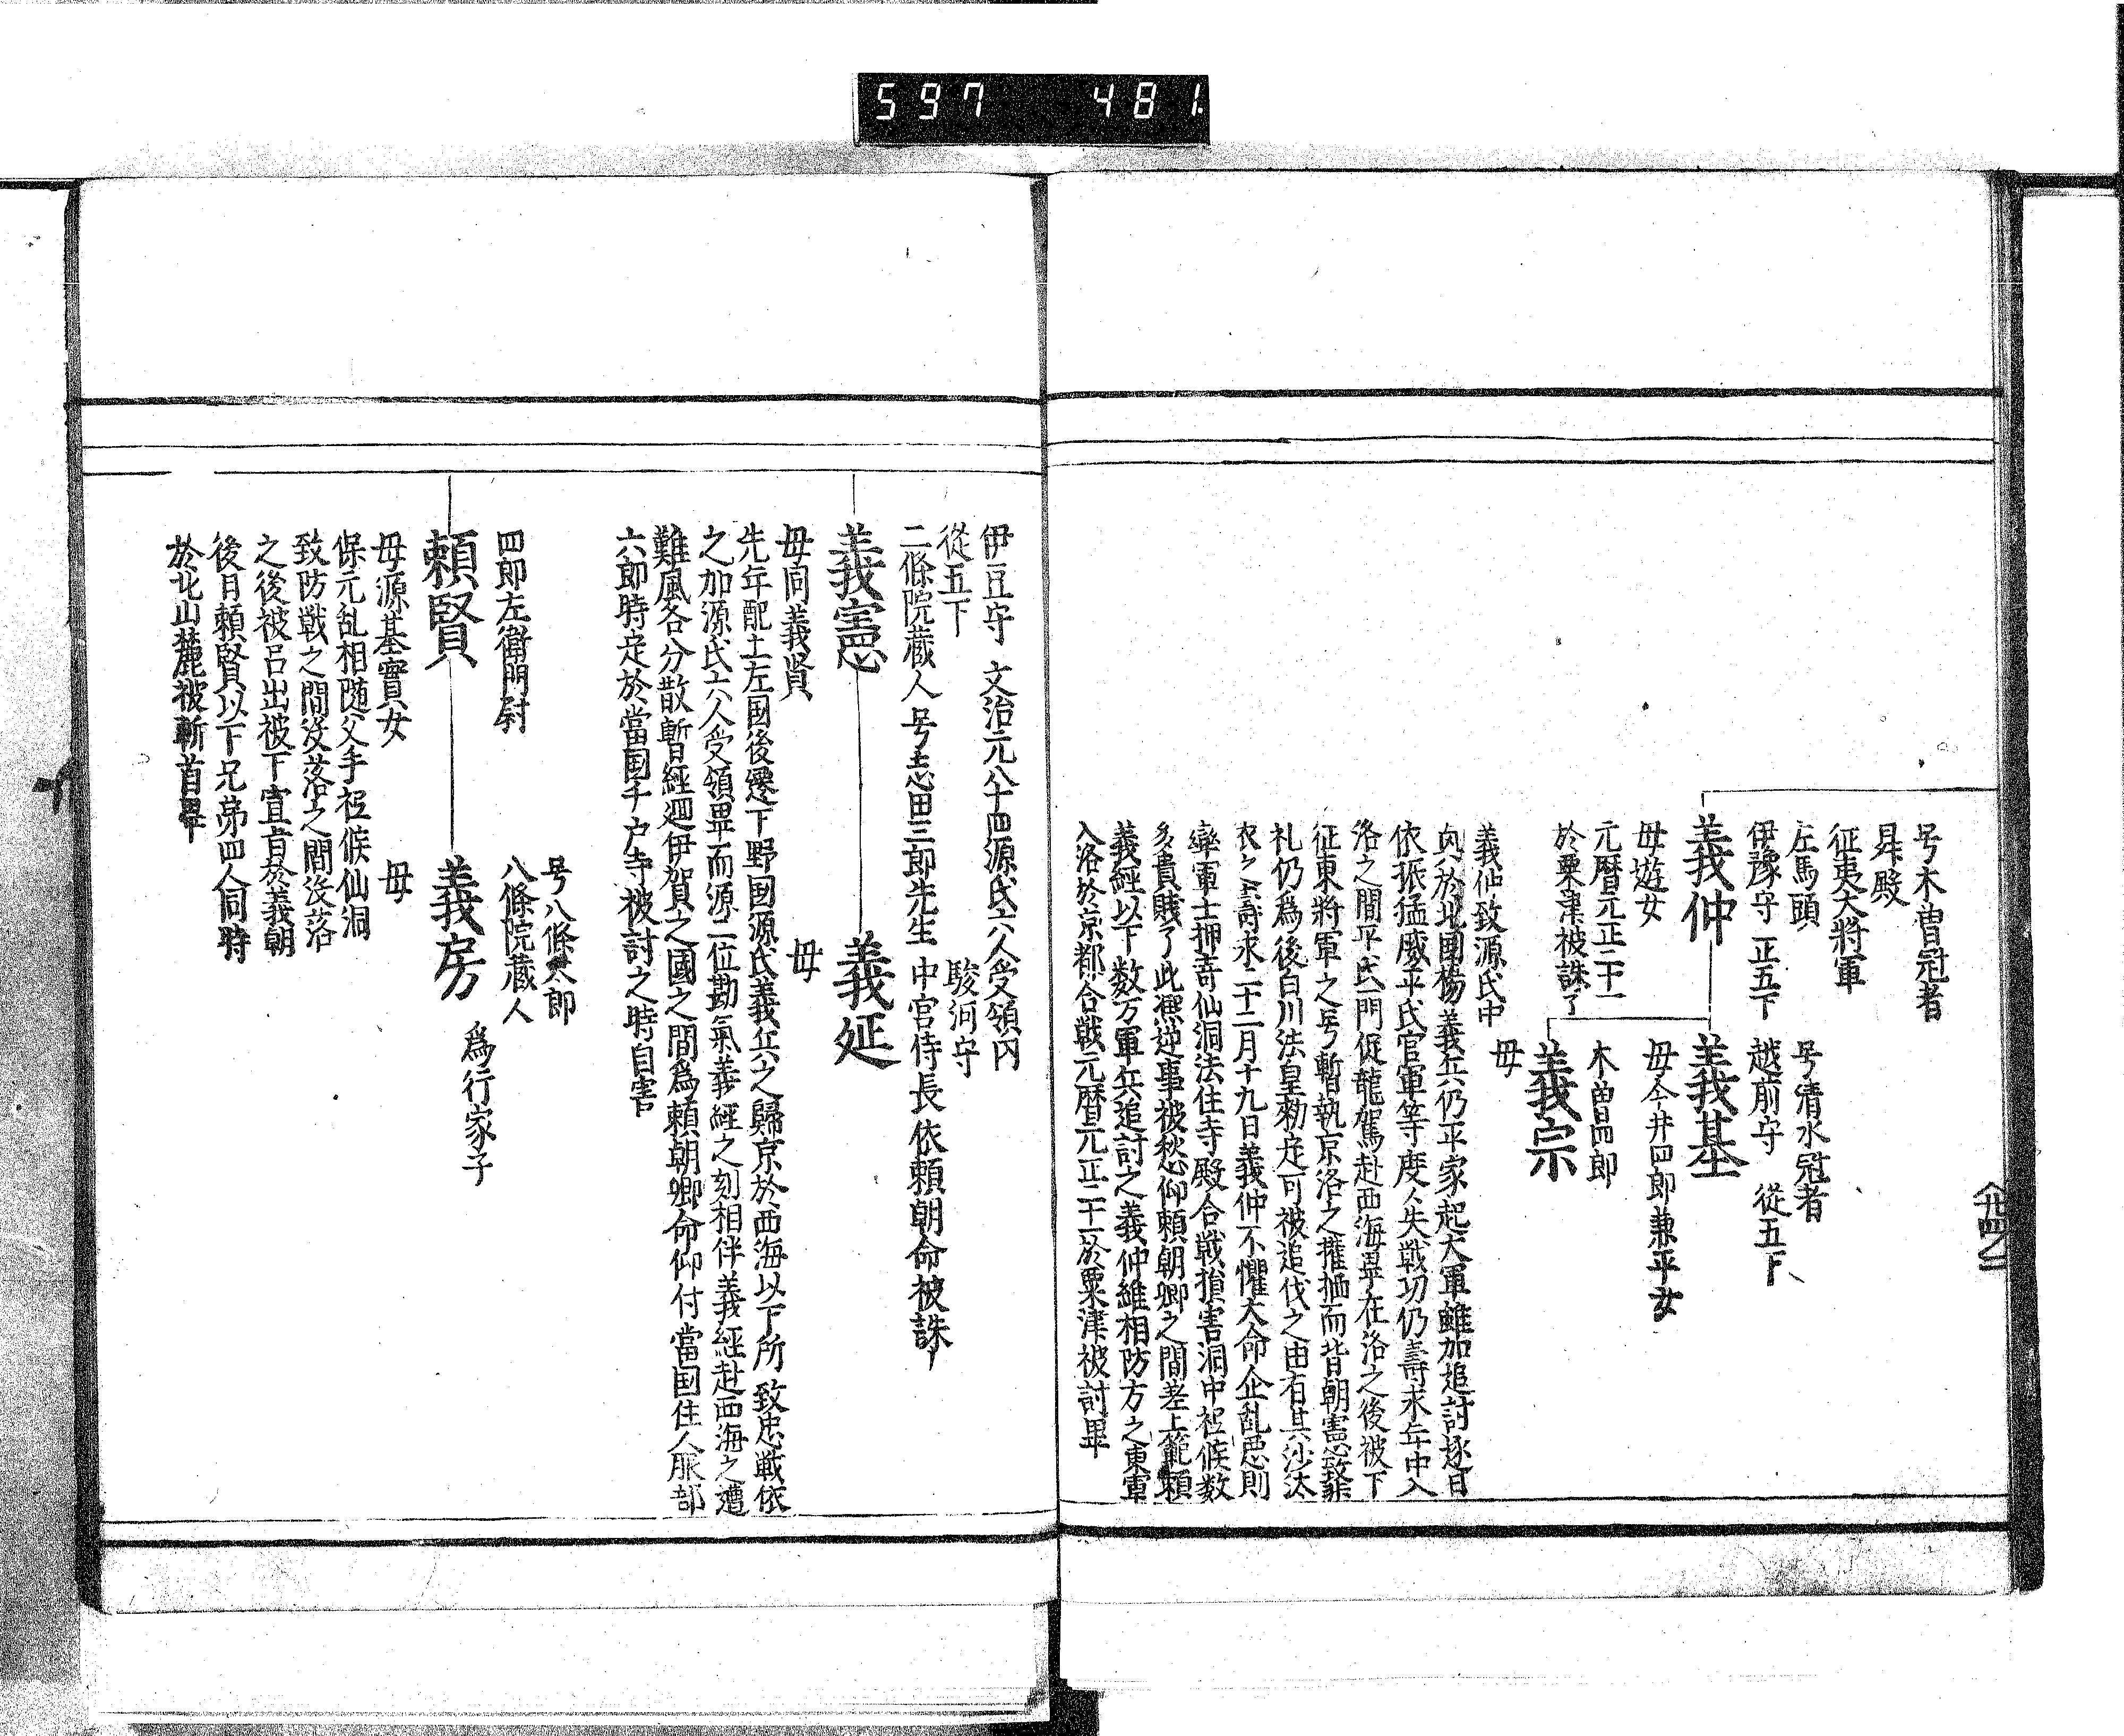 597 481
号木曽冠者
昇殿
征夷大将軍
左馬頭
伊豫守 正五下
義仲
母遊女
元暦元正二十一
於粟津被誅了
号清水冠者
越前守 従五下
義基
母今井四郎兼平女
木曽四郎
義宗
母
義仙致源氏中
向於北國楊義兵仍平家起大軍雖加追討逐日
依振猛威平氏官軍等度々失戦功仍壽永年中入
洛之間平氏一門促龍駕赴西海畢在洛之後被下
征東将軍之号暫執京洛之権柄而背朝憲致
礼仍為後白川法皇勅定可被追伐之由有其沙汰
之壽永二十二月十九日義仲不懼大命企乱悪則
率軍士押寄仙洞法住寺殿合戦損害洞中祗候数
多貴賎了此逆事被愁仰頼朝卿之間差上範頼
義經以下数万軍兵追討之義仲雖相防方之東軍
入洛於京都合戦元暦元正二十一於粟津被討畢
伊豆守 文治元八十四源氏六人受領内
従五下
二條院蔵人 号志田三郎先生
義憲
母同義賢
駿河守
中宮侍長 依頼朝命被誅
義延
母
先年配土左国後遷下野国源氏義兵之歸京於西海以下所致忠戦依
之加源氏六人受領畢而源二位勘氣義經之刻相伴義經赴西海之遭
難風各分散暫經迴伊賀之國之間為頼朝卿命仰付當国住人服部
六郎時定於當国千戸寺被討之時自害
四郎左衛門尉
頼賢
母源基實女
保元乱相随父手祗候仙洞
致防戦之間没落之間没落
之後被召出被下宣旨於義朝
後日頼賢以下兄弟四人同時
於北山麓被斬首畢
号八條太郎
八條院蔵人
義房
母
為行家子